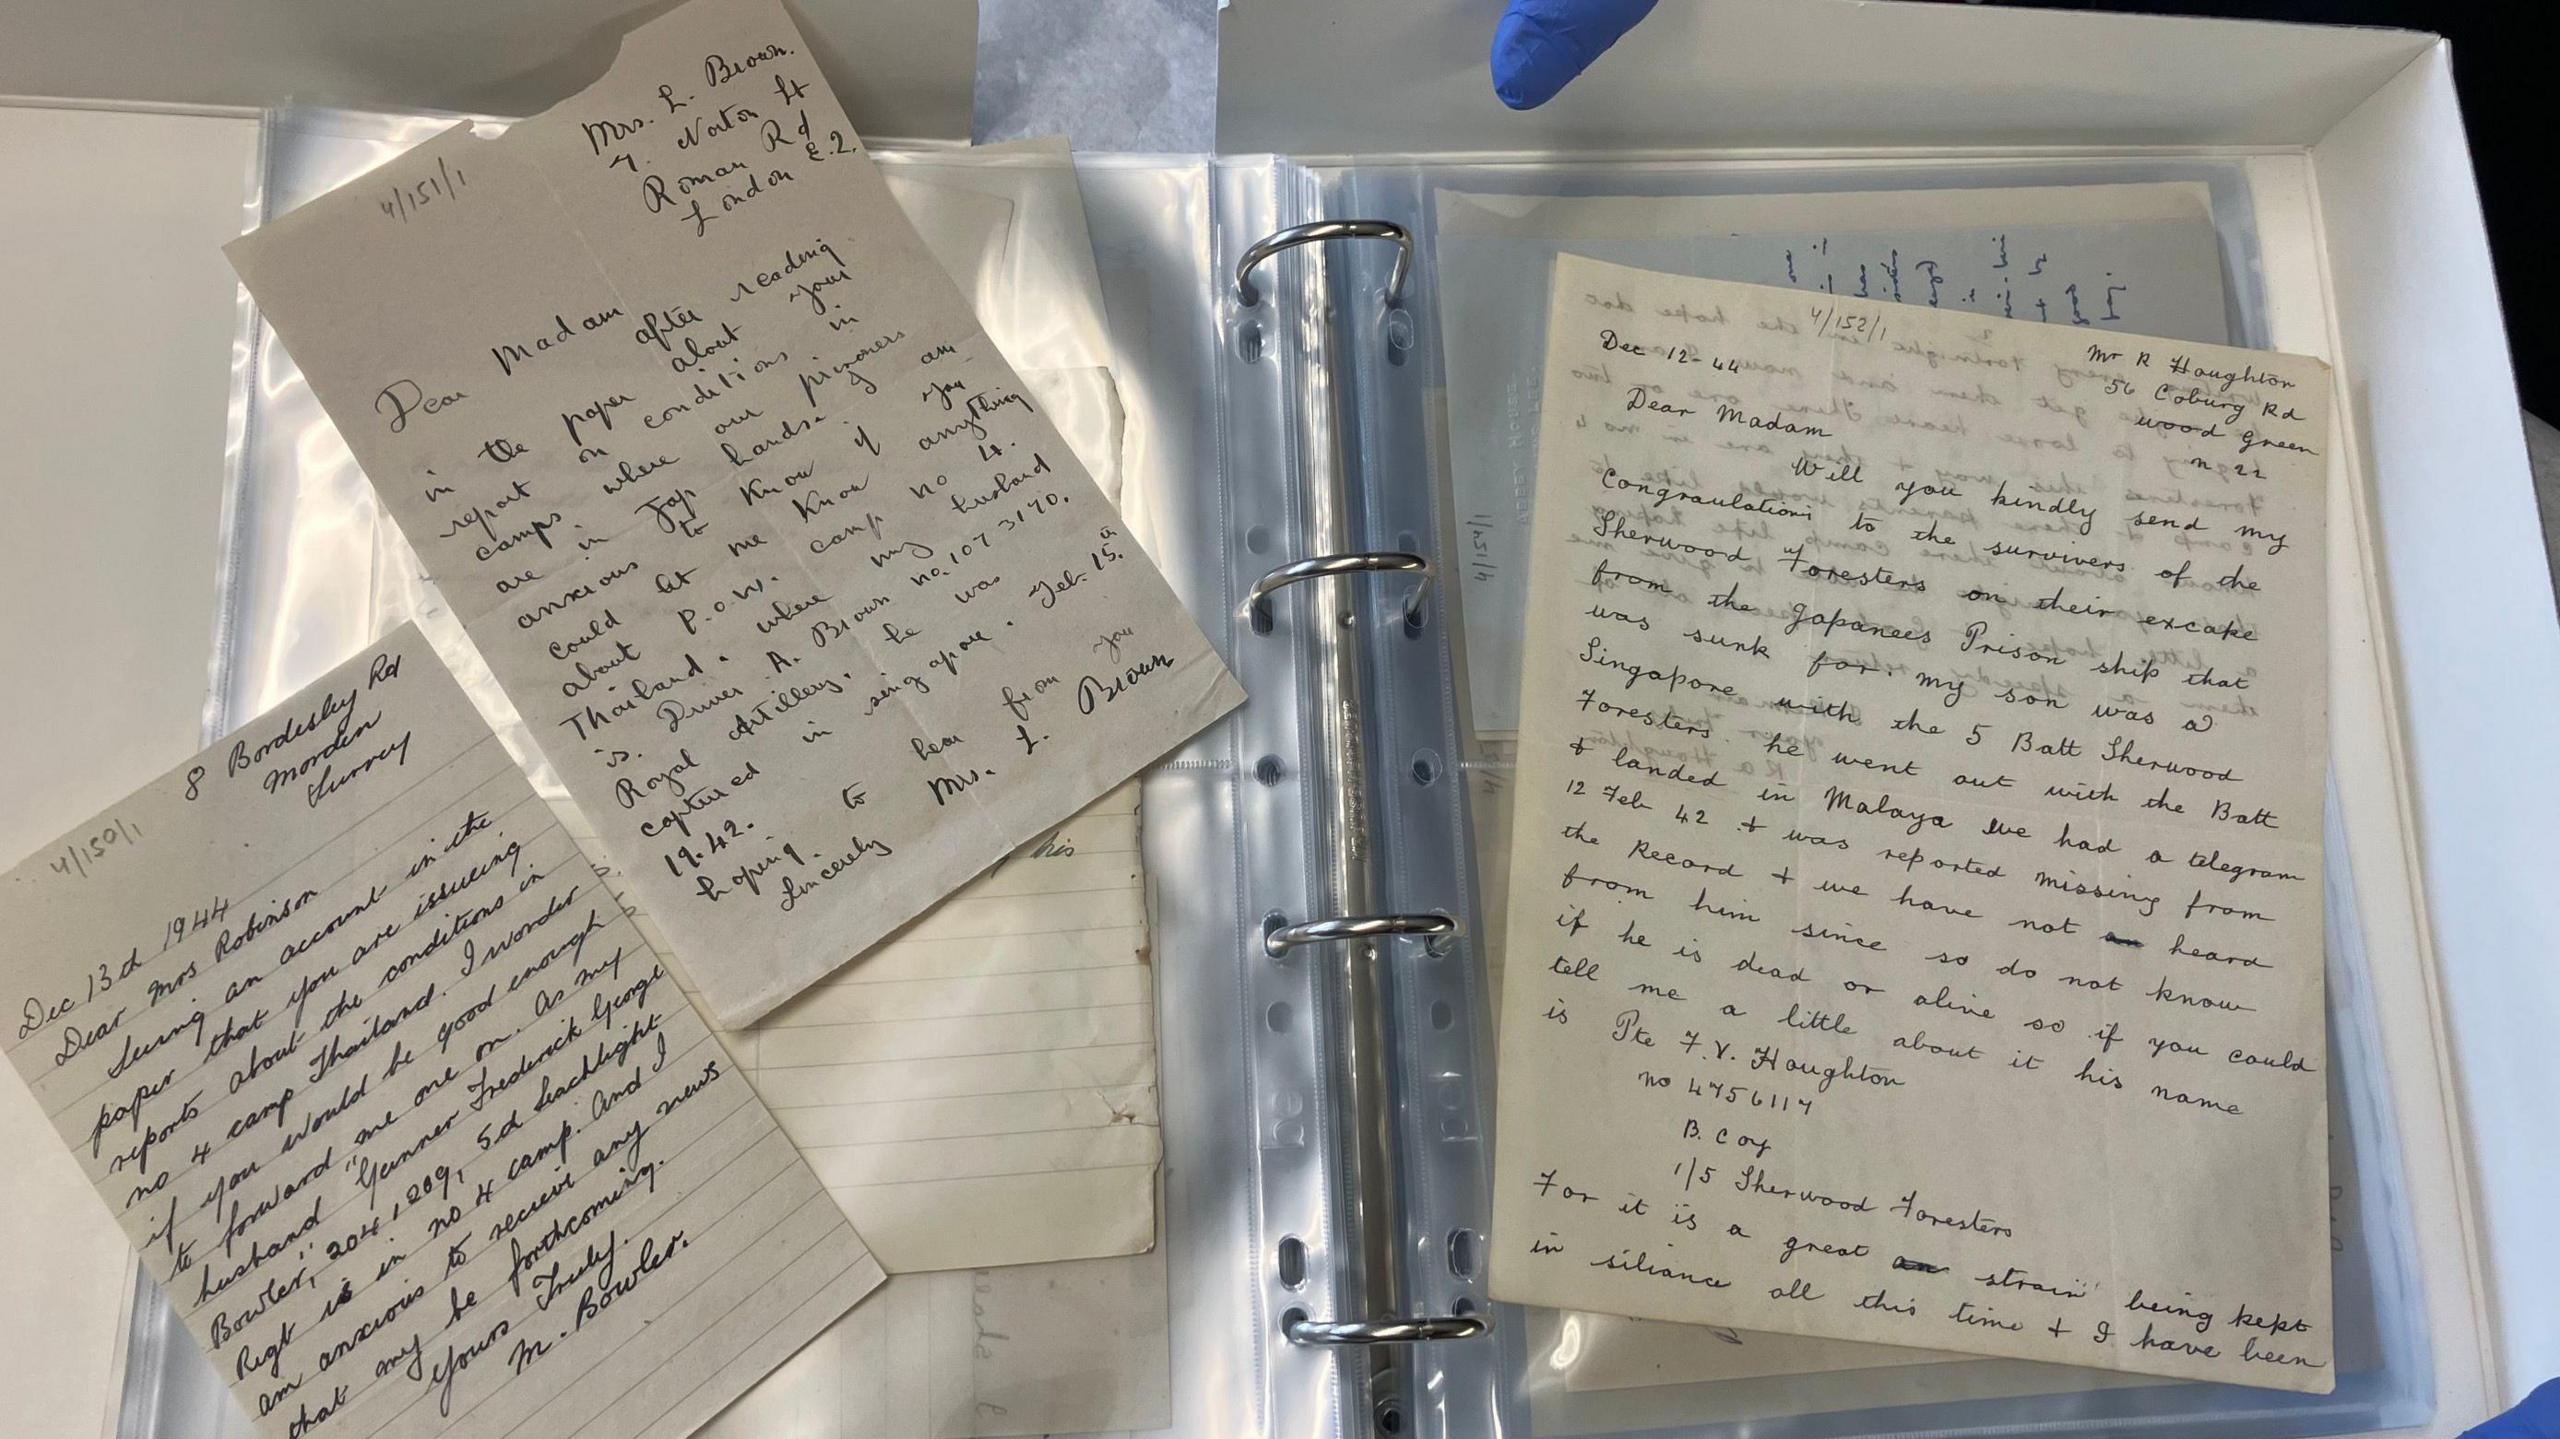 4/151/1
Mrs. L. Brown.
7. Norton St
Roman Rd
E.2.
London
Dear Madam
after reading
in the paper about your
report on conditions in
camps where our prisoners
are in Jap hands. I am
anxious to know if you
could let me know anything
about P.O.W. camp no 4.
Thailand. where my husband
is. Driver A. Brown no. 1073170.
Royal Artillery. he was
captured in singapore. Feb. 15.
19.42.
hoping to hear from you
Sincerely Mrs. L. Brown
4/150/1
8 Bordesley Rd
Morden
Surrey
Dec 13d 1944
Dear Mrs Robinson
Seeing an account in the
paper that you are issueing
reports about the conditions in
no 4 camp Thailand. I wonder
if you would be good enough
to forward me one on. As my
husband "Gunner Frederick George
Bowler," 2041209, 5d Seachlight
Regt is in no 4 camp. And I
am anxious to receive any news
that my be forthcoming.
Yours Truly.
M. Bowler.
his
4/152/1
Dec 12-44
Mr R Houghton
56 Coburg Rd
wood Green
n 22
Dear Madam
Will you kindly send my
Congraulations to the survivers of the
Sherwood Foresters on their excape
from the Japanees Prison ship that
was sunk for. my son was a
Singapore with the 5 Batt Sherwood
Foresters he went out with the Batt
& landed in Malaya we had a telegram
12 Feb 42 & was reported missing from
the Record & we have not an heard
from him since so do not know
if he is dead or alive so if you could
tell me a little about it his name
is Pte F.V. Houghton
no 4756117
B. Coy
1/5 Sherwood Foresters
For it is a great an strain being kept
in siliance all this time & I have been
4/154/1